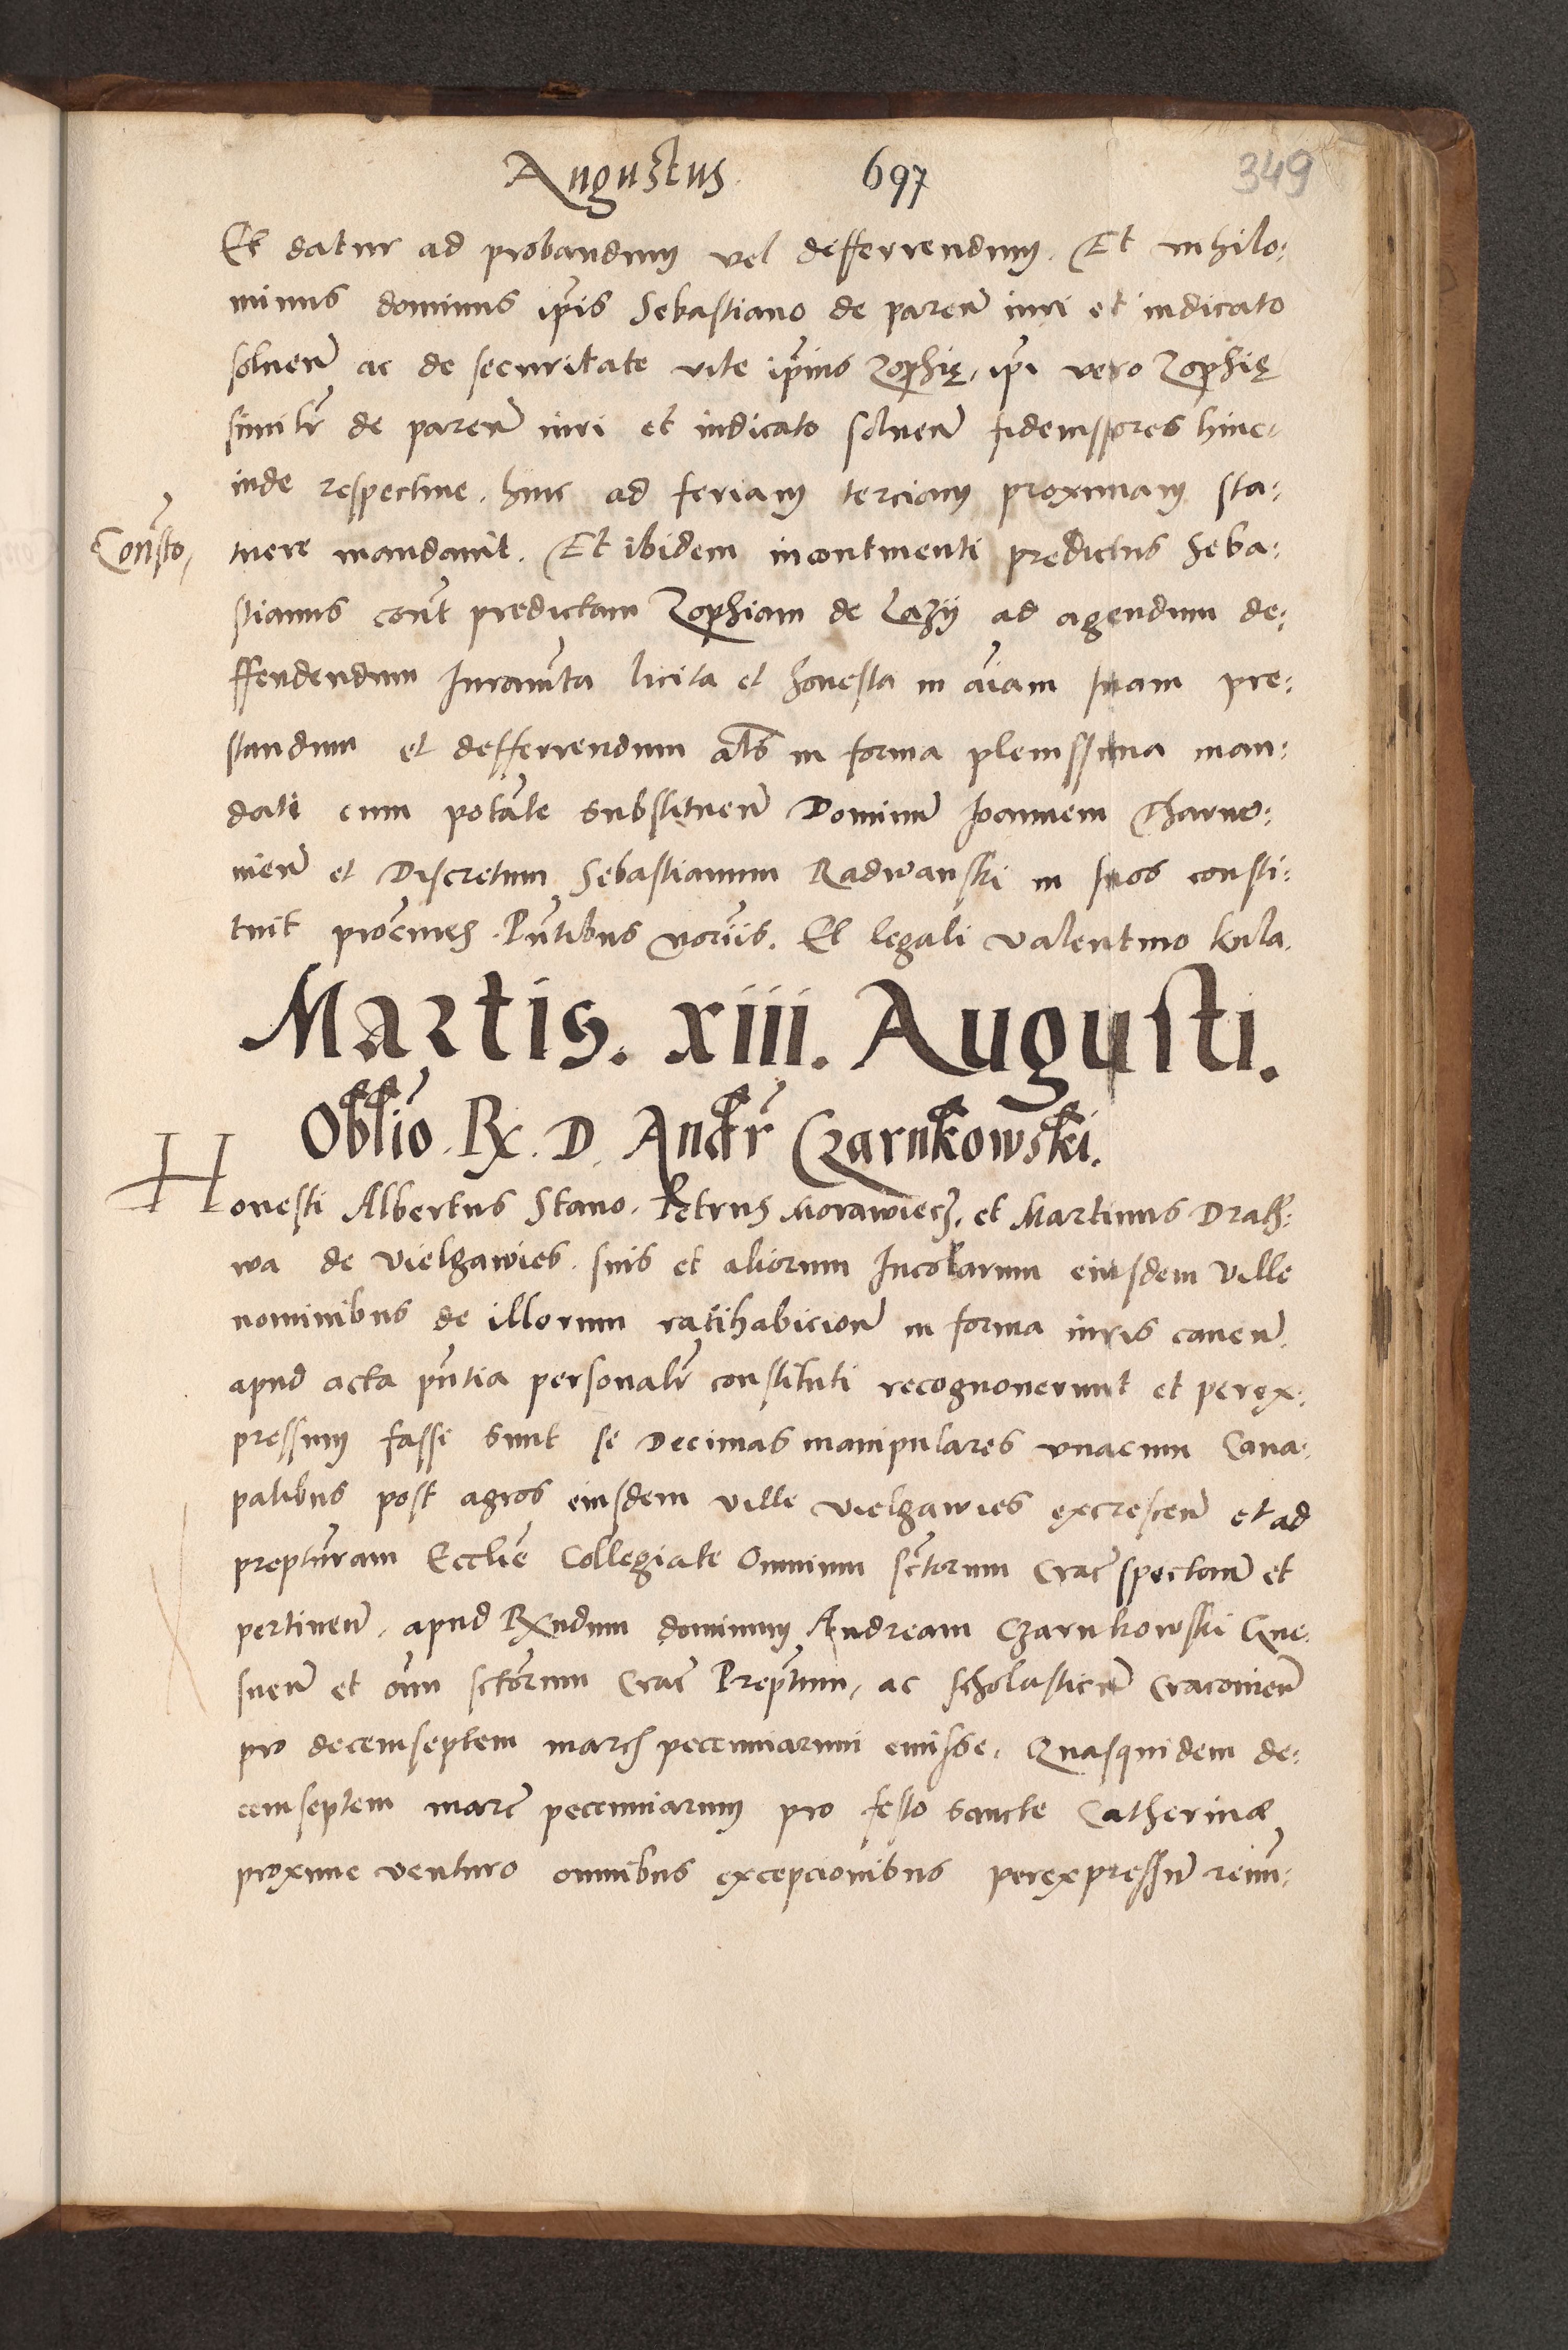 Augustus 697 349
Et datur ad probandum vel defferrendum. Et nihilo:
minus dominus ip̄is Sebastiano de paren̄ iuri et iudicato
soluen̄ ac de securitate vite ip̄ius Zophię, ip̄i vero Zophię
similr̄ de paren̄ iuri et iudicato soluen̄ fideiussores hinc
inde respective, hinc ad feriam terciam proximam sta:
Constō,
tuere mandavit. Et ibidem incontinenti predictus Seba:
stianus cont̄ predictam Zophiam de Lazy ad agendum de:
ffendendum Juramt̄a licita et honesta in aīam suam pre:
standum et defferrendum al̄s in forma plenissima man:
dati cum potāte substituen̄ Dominum Joannem Charno:
nien̄ et Discretum Sebastianum Radwanski in suos consti:
tuit procr̄es. Pn̄tibus notariis. Et legali Valentino Kula.
Martis. xiii. Augusti.
Oblīo. Rx. D. Andr̄ Czarnkowski.
Honesti Albertus Stano, Petrus Morawiecz, et Martinus Drah:
wa de Vielgawies suis et aliorum Incolarum eiusdem ville
nominibus de illorum ratihabicion̄ in forma iuris caven̄.
apud acta pn̄tia personalr̄ constituti recognoverunt et perex:
pressum fassi sunt se Decimas manipulares unacum Cana:
palibus post agros eiusdem ville Vielgawies excrescen̄ et ad
preptūram Eccliē Collegiate Omnium sctorum Crac̄ spectan̄ et
pertinen̄, apud Rxndum dominum Andream Czarnkowski Gne:
snen̄ et oīm sctōrum Crac̄ Prep̄tum, ac scholasticū Cracovien̄
pro decemseptem march pecuniarum emisse. Quasquidem de:
cemseptem marc̄ pecuniarum pro festo sancte Catherinæ
proxime venturo omnibus excepcionibus perexpressum̄ renū: